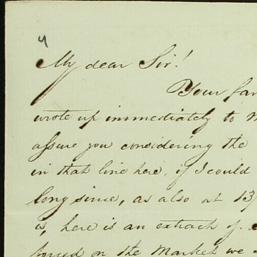 4
My dear Sir!
Your fav
wrote up immediately to
assure you considering the
in that line here, if I could
long since, as also at 13/
is, here is an extract of
on the Market we